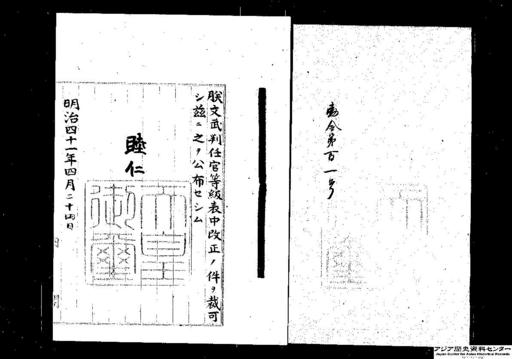 勅令第百一号
朕文武判任官等級表中改正ノ件ヲ裁可
シ茲ニ之ヲ公布セシム
睦仁
天皇
御璽
明治四十一年四月二十四日
アジア歴史資料センター
Japan Center for Asian Historical Records